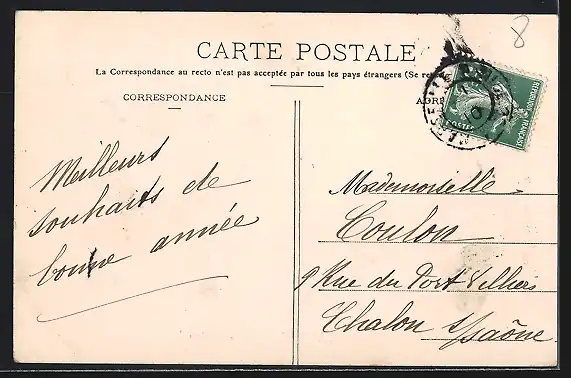 8
CARTE POSTALE
La Correspondance au recto n'est pas acceptée par tous les pays étrangers (Se
CORRESPONDANCE
Meilleurs
souhaits de
bonne année
Mademoiselle
Coulon
9 Rue du Port Villiers
Chalon s/Saône
POSTES
REPUBLIQUE FRANÇAISE